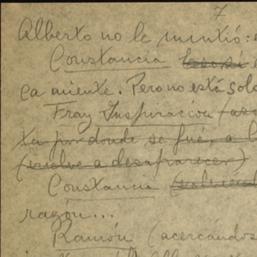 7
Alberto no le mintió:
Constancia
ca miente. Pero no está solo
Fray Inspiración
por donde se fué, a l
(vuelve a desaparecer)
Constancia
razón...
Ramón (acercándos